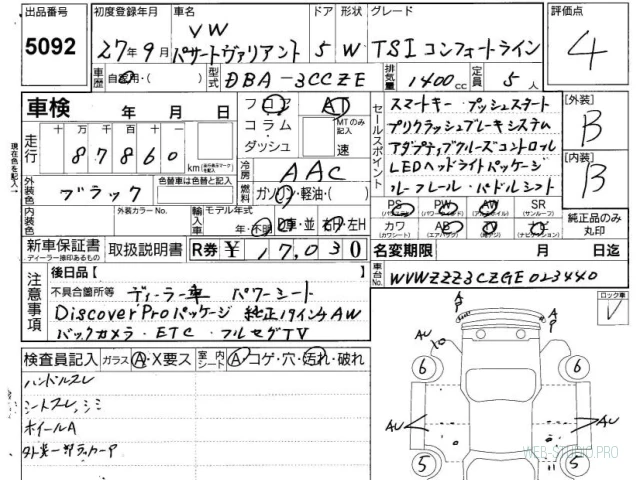 出品番号 初度登録年月 車名 ドア 形状 グレード 評価点
5092 27年9月 VW パサートヴァリアント 5 W TSI コンフォートライン 4
車歴 自家用・( ) 型式 DBA-3CCZE 排気量 1400cc 定員 5人
車検 年 月 日
フロア AT
コラム・ MTのみ記入
ダッシュ 速
走行 十 万 千 百 十 一
87860 km
冷房 AAC
外装色 ブラック 色替車は色替と記入 燃料 ガソリン・軽油・( )
内装色 外装カラーNo. 輸入車 モデル年式 年・不明 D車・並 右H・左H
新車保証書 取扱説明書 R券 ¥17,030
ディーラー捺印あるもの
セールスポイント
スマートキー プッシュスタート
プリクラッシュブレーキシステム
アダプティブクルーズコントロール
LEDヘッドライトパッケージ
ルーフレール・パドルシフト
【外装】
B
【内装】
B
PS PW AW SR
(パワステ) (パワーウインド) (アルミホイル) (サンルーフ)
カワ AB ナビ
(カワシート) (エアバック) (ナビゲーション)
純正品のみ
丸印
名変期限 月 日迄
車台No. WVWZZZ3CZGE023440
注意事項
後日品【 】
不具合箇所等 ディーラー車 パワーシート
DiscoverProパッケージ 純正17インチAW
バックカメラ・ETC・フルセグTV
ロック車
検査員記入 ガラス A・X要ス 室内シート A・コゲ・穴・汚れ・破れ
ハンドルスレ
シートスレ,シミ
ホイールA
現在色を記入
A P A P
AU
6 6
AU AU
5 5
WEB-STUDIO.PRO